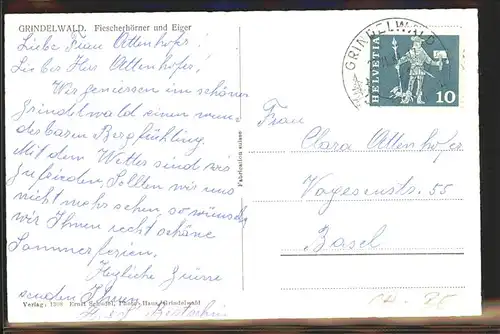 GRINDELWALD. Fiescherhörner und Eiger
Liebe Frau Ottenhofer!
Lieber Herr Ottenhofer!
Wir geniessen im schönen
Grindelwald einen wun-
derbaren Bergfrühling.
Mit dem Wetter sind wir
zufrieden. Sollten wir uns
nicht mehr sehen, so wünschen
wir Ihnen recht schöne
Sommerferien.
Herzliche Grüsse
senden Ihnen
Verlag: Ernst Schudel, Photo-Haus, Grindelwald
Fabrication suisse
GRINDELWALD
HELVETIA
10
Frau
Clara Ottenhofer
Vogesenstr. 55
Basel